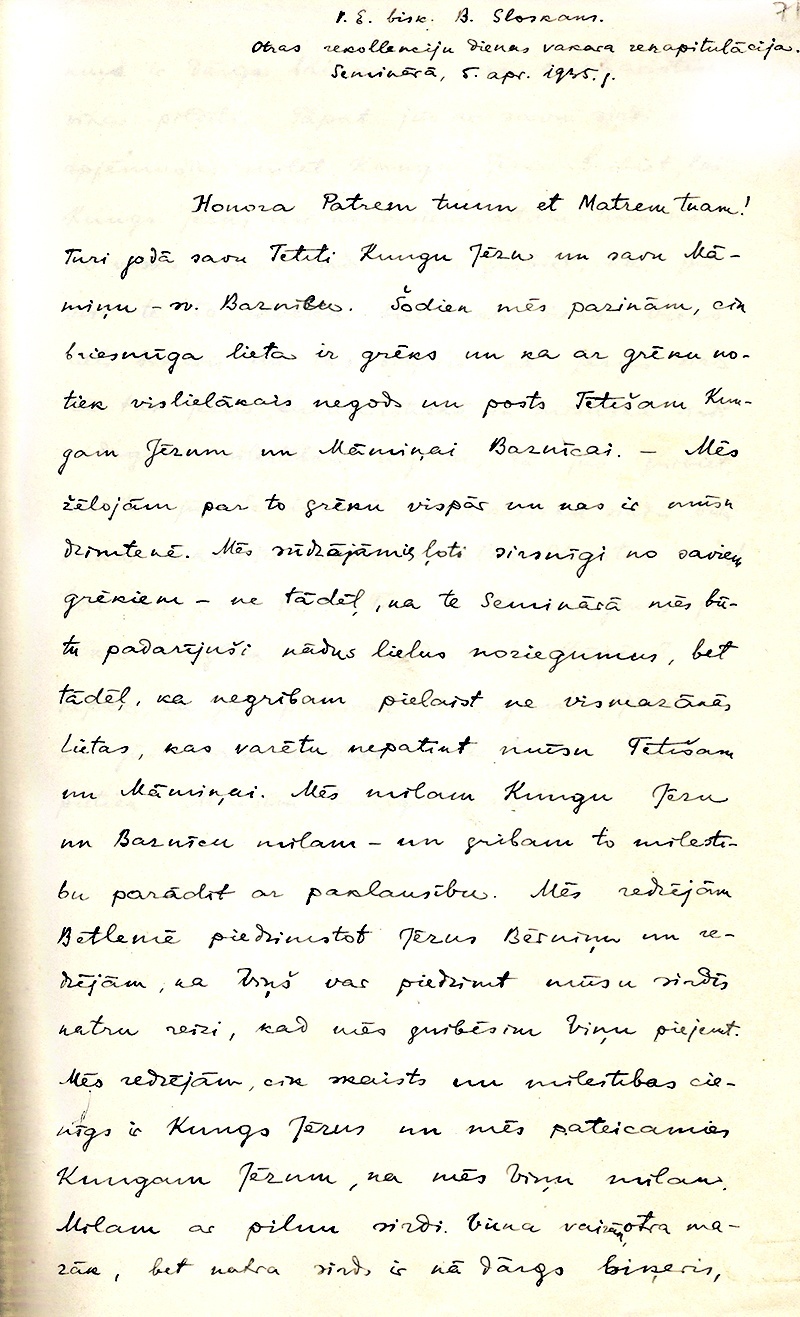 71
V. E. bisk. B. Sloskans.
Otras rekollekciju dienas vakara rekapitulācija.
Seminārā, 5. apr. 1935. g.
Honora Patrem tuum et Matrem tuam!
Turi godā savu Tētiti Kungu Jēzu un savu Mā-
miņu - sv. Baznīcu. Šodien mēs pazinām, cik
briesmīga lieta ir grēks un ka ar grēku no-
tiek vislielākais negods un posts Tētišam Kun-
gam Jēzum un Māmiņai Baznīcai. — Mēs
žēlojām par to grēku vispār un kas ir mūsu
dzimtenē. Mēs sūdzājāmies ļoti sirsnīgi no saviem
grēkiem - ne tādēļ, ka te Seminārā mēs bū-
tu padarījuši kādus lielus noziegumus, bet
tādēļ, ka negribam pielaist ne vismazākās
lietas, kas varētu nepatikt mūsu Tētišam
un Māmiņai. Mēs mīlam Kungu Jēzu
un Baznīcu mīlam - un gribam to mīlestī-
bu parādīt ar paklausību. Mēs redzējām
Betlemē piedzimstot Jēzus Bērniņu un re-
dzējām, ka Viņš var piedzimt mūsu sirdīs
katru reizi, kad mēs gribēsim Viņu pieņemt.
Mēs redzējām, cik skaists un mīlestības cie-
nīgs ir Kungs Jēzus un mēs pateicamies
Kungam Jēzum, ka mēs Viņu mīlam.
Mīlam ar pilnu sirdi. Viena vairāk, otra ma-
zāk, bet katra sirds ir kā dārgs biķeris,